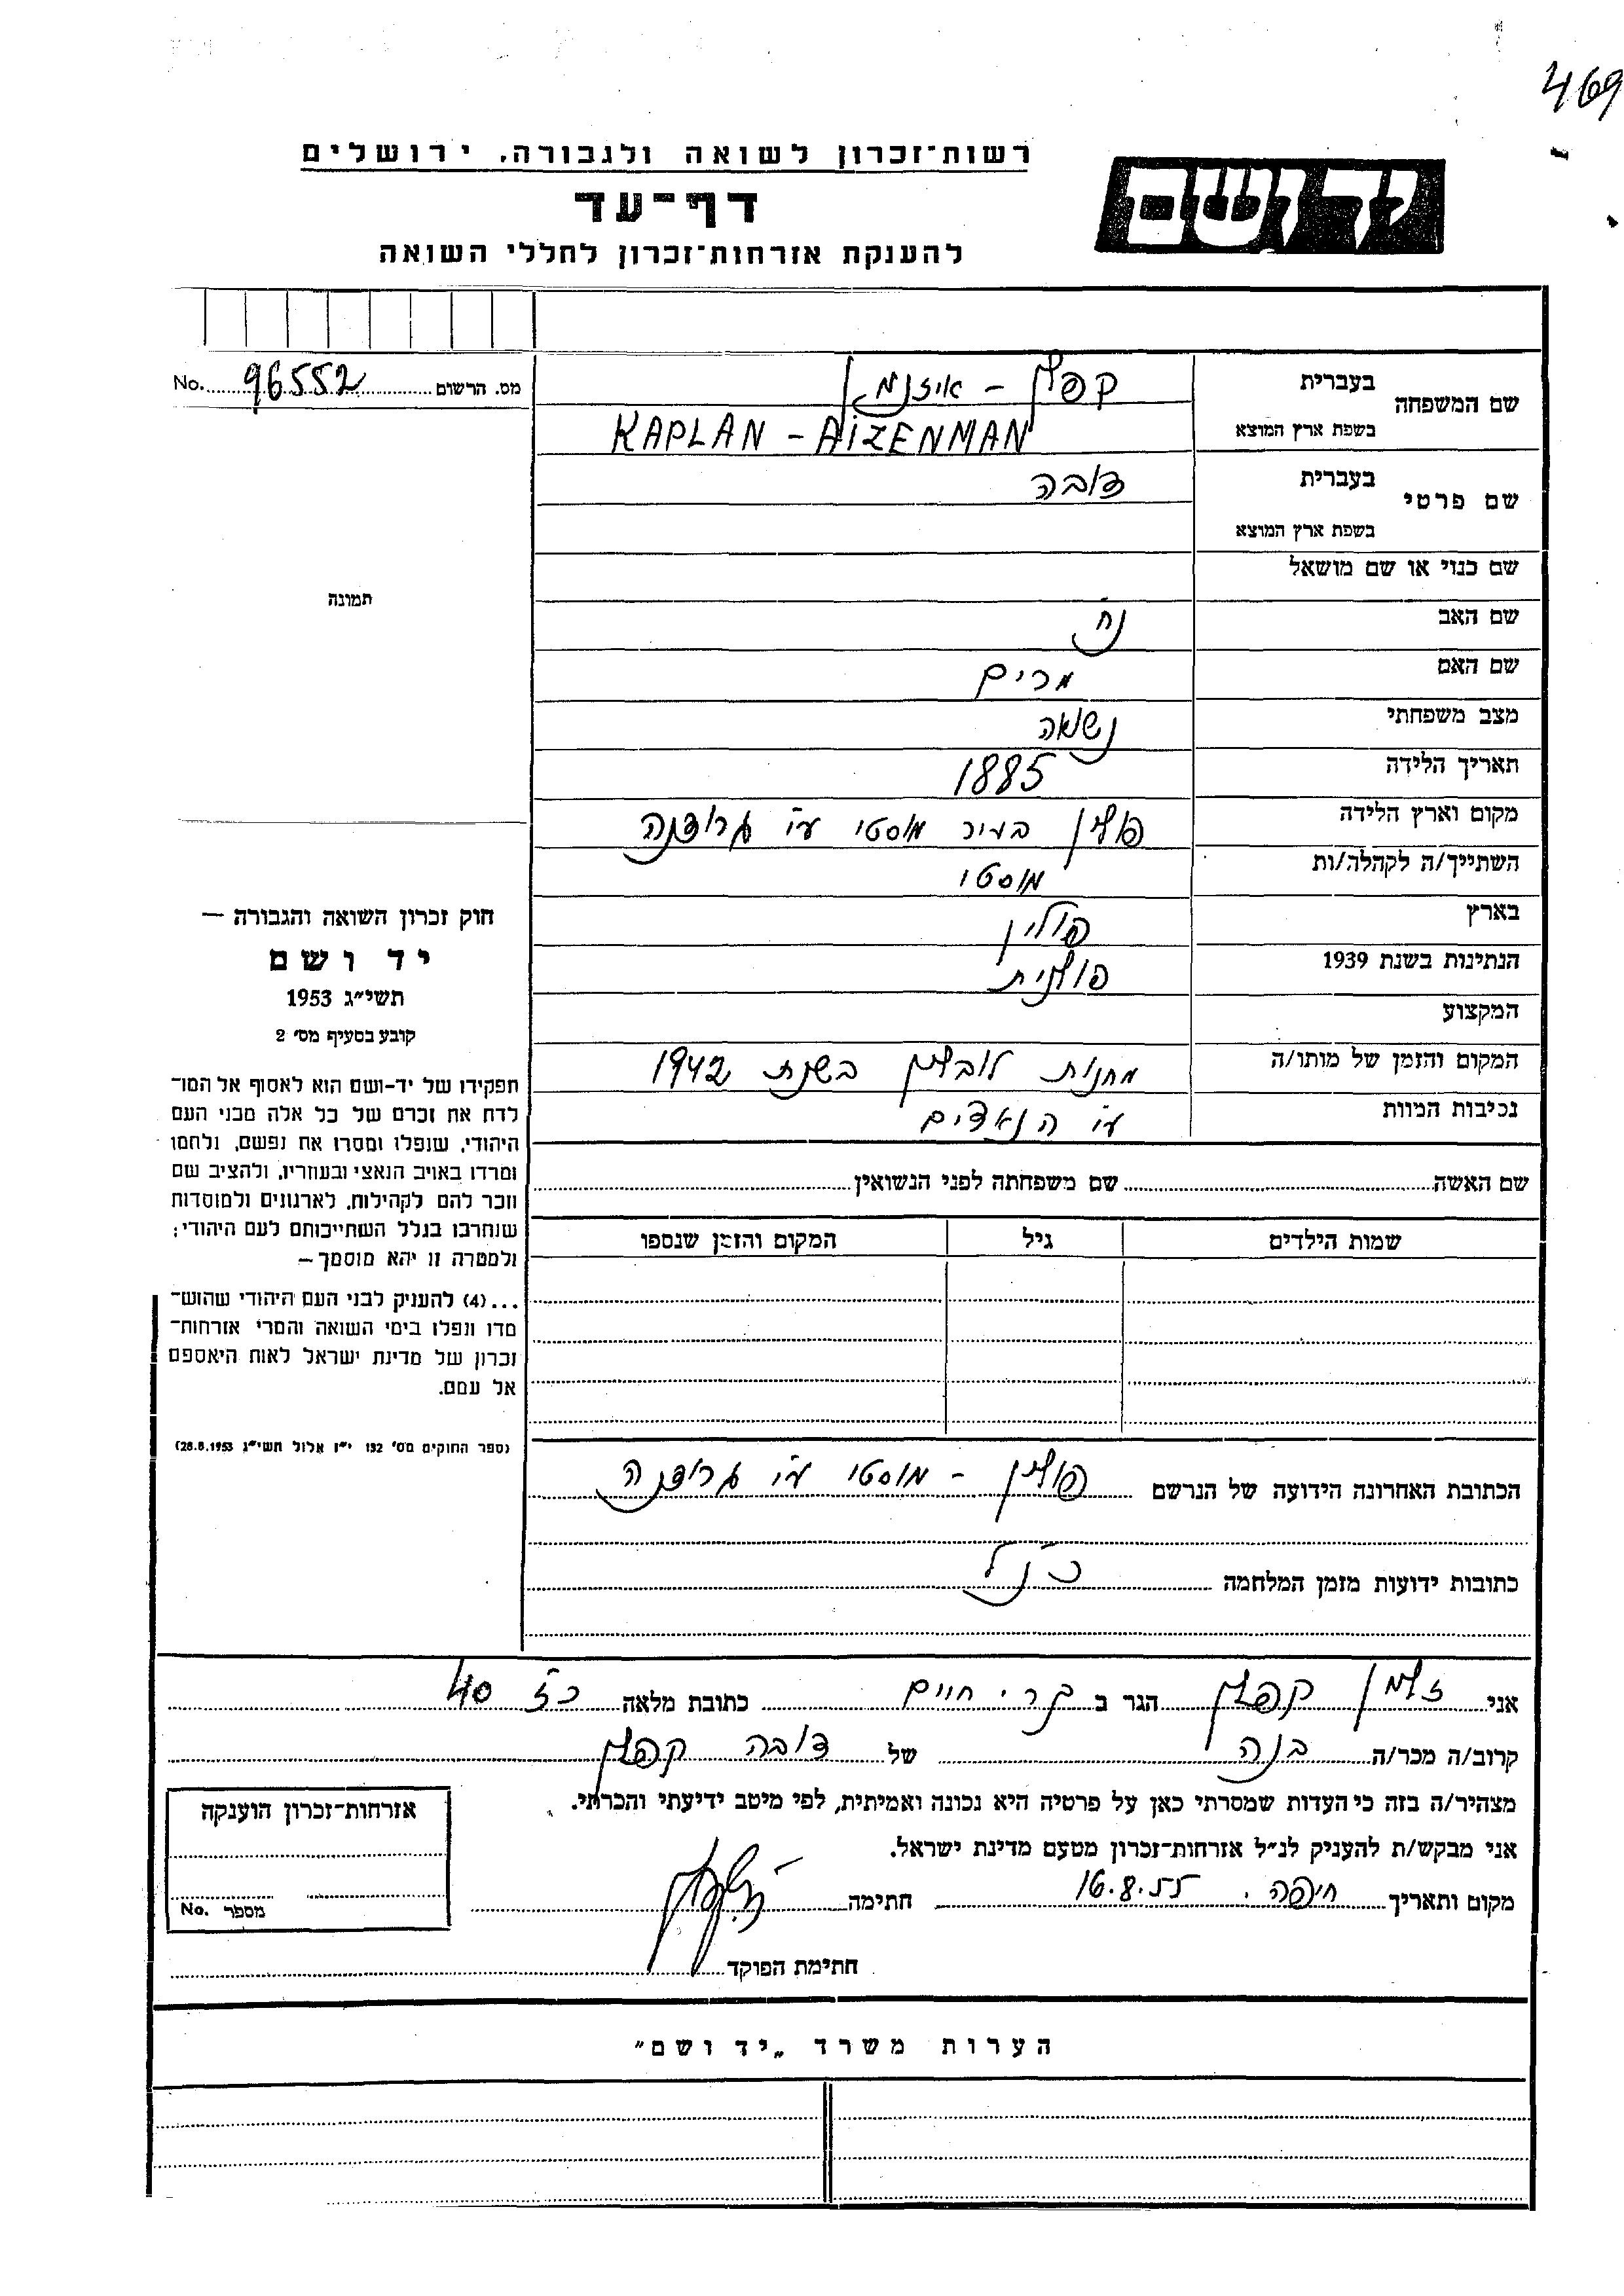 469
רשות־זכרון לשואה ולגבורה, ירושלים
יד ושם
דף־עד
להענקת אזרחות־זכרון לחללי השואה
No. 96552 מס. הרשום
שם המשפחה בעברית קפלן - איזנמן
בשפת ארץ המוצא KAPLAN - AIZENMAN
שם פרטי בעברית דובה
בשפת ארץ המוצא
שם כנוי או שם מושאל
שם האב נח
שם האם מרים
מצב משפחתי נשואה
תאריך הלידה 1885
מקום וארץ הלידה פולין בעיר מוסטי ע"י גרודנה
השתייך/ה לקהלה/ות מוסטי
בארץ פולין
הנתינות בשנת 1939 פולנית
המקצוע
המקום והזמן של מותו/ה מחנות לובלין בשנת 1942
נסיבות המוות ע"י הנאצים
שם האשה שם משפחתה לפני הנשואין
שמות הילדים גיל המקום והזמן שנספו
תמונה
חוק זכרון השואה והגבורה —
יד ושם
תשי״ג 1953
קובע בסעיף מס׳ 2
תפקידו של יד-ושם הוא לאסוף אל המו־
לדת את זכרם של כל אלה מבני העם
היהודי, שנפלו ומסרו את נפשם, נלחמו
ומרדו באויב הנאצי ובעוזריו, ולהציב שם
וזכר להם לקהילות, לארגונים ולמוסדות
שנחרבו בגלל השתייכותם לעם היהודי;
ולמטרה זו יהא מוסמך —
...(4) להעניק לבני העם היהודי שהוש־
מדו ונפלו בימי השואה והמרי אזרחות־
זכרון של מדינת ישראל לאות היאספם
אל עמם.
(ספר החוקים מס׳ 132 י״ז אלול תשי״ג 28.8.1953)
הכתובת האחרונה הידועה של הנרשם פולין - מוסטי ע"י גרודנה
כתובות ידועות מזמן המלחמה כנ"ל
אני זלמן קפלן הגר ב קרי חיים כתובת מלאה כז 40
קרוב/ה מכר/ה בנה של דובה קפלן
מצהיר/ה בזה כי העדות שמסרתי כאן על פרטיה היא נכונה ואמיתית, לפי מיטב ידיעתי והכרתי.
אני מבקש/ת להעניק לנ״ל אזרחות־זכרון מטעם מדינת ישראל.
מקום ותאריך חיפה. 16.8.55 חתימה
חתימת הפוקד
אזרחות־זכרון הוענקה
מספר No.
הערות משרד „יד ושם״